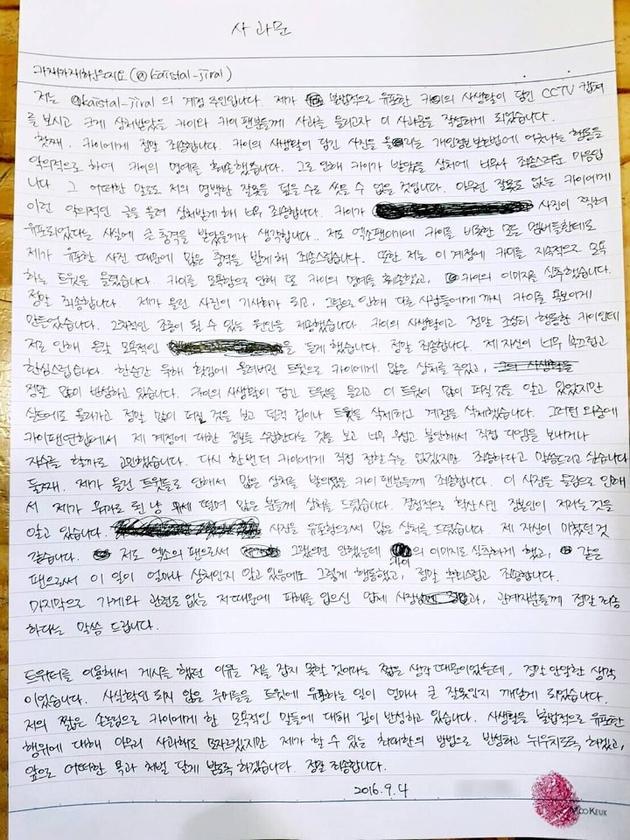 사과문
카재가재하는지요 (@kaistal_jiral)
저는 @kaistal_jiral 의 계정 주인입니다. 제가 불법적으로 유포한 카이의 사생활이 담긴 CCTV 캡쳐
를 보시고 크게 상처받았을 카이와 카이 팬분들께 사과를 드리고자 이 사과문을 작성하게 되었습니다.
첫째. 카이에게 정말 죄송합니다. 카이의 사생활이 담긴 사진을 올리는 개인정보보호법에 어긋나는 행동을
악의적으로 하여 카이의 명예를 훼손했습니다. 그로 인해 카이가 받았을 상처에 너무나 죄송스러운 마음입
니다. 그 어떠한 말로도 저의 명백한 잘못을 덮을 수는 없을 것입니다. 아무런 잘못도 없는 카이에게
이런 악의적인 글을 올려 상처받게 해 너무 죄송합니다. 카이가 사진이 찍히며
유포되었다는 사실에 큰 충격을 받았을거라 생각합니다.. 저도 엑소팬이기에 카이를 비롯한 모든 멤버들한테도
제가 유포한 사진 때문에 많은 충격을 받게 해 죄송스럽습니다. 또한 저는 이 계정에 카이를 지속적으로 모욕
하는 트윗을 올렸습니다. 카이를 모욕함으로 인해 또 카이의 명예를 훼손했고, 카이의 이미지를 실추했습니다.
정말 죄송합니다. 제가 올린 사진이 기사화가 되고, 그럼으로 인해 다른 사람들에게까지 카이를 욕보이게
만들었습니다. 그차적인 조롱이 될 수 있는 원인을 제공했습니다. 카이의 사생활이고 정말 조심히 행동한 카이인데
저로 인해 온갖 모욕적인 을 듣게 했습니다. 정말 죄송합니다. 제 자신이 너무 부끄럽고
한심스럽습니다. 한순간 욱해 홧김에 올려버린 트윗으로 카이에게 많은 상처를 주었고,
정말 많이 반성하고 있습니다. 카이의 사생활이 담긴 트윗을 올리고 이 트윗이 많이 퍼질 것을 알고 있었지만
실트에도 올라가고 정말 많이 퍼질 것을 보고 덜컥 겁이나 트윗을 삭제하고 계정을 삭제했습니다. 그러던 와중에
카이팬연합에서 제 계정에 대한 정보를 수집한다는 것을 보고 너무 무섭고 불안해서 직접 디엠을 보내거나
자수를 할까도 고민했습니다. 다시 한번 더 카이에게 직접 전할 수는 없겠지만 죄송하다고 말씀드리고 싶습니다
둘째. 제가 올린 트윗들로 인해서 많은 상처를 받았을 카이 팬분들께 죄송합니다. 이 사진을 올림으로 인해
서 제가 뭐라도 된 냥 유세 떨며 많은 분들께 상처를 드렸습니다. 결정적으로 확산시킨 장본인이 저라는 것을
알고 있습니다. 사진을 유포함으로써 많은 상처를 드렸습니다. 제 자신이 미쳤던 것
같습니다. 저도 엑소의 팬으로써 그랬으면 안됐는데 카이의 이미지도 실추하게 했고, 같은
팬으로써 이 일이 얼마나 상처인지 알고 있음에도 그렇게 행동했고, 정말 후회스럽고 죄송합니다.
마지막으로 가게와 관련도 없는 저 때문에 피해를 입으신 업체 사장님과, 관계자분들께 정말 죄송
하다는 말씀 드립니다.
트위터를 이용해서 게시를 했던 이유는 저를 잡지 못할 것이라는 짧은 생각 때문이었는데, 정말 안일한 생각
이었습니다. 사실확인 되지 않은 루머들을 트윗에 유포하는 일이 얼마나 큰 잘못인지 깨닫게 되었습니다.
저의 짧은 손놀림으로 카이에게 한 모욕적인 말들에 대해 깊이 반성하고 있습니다. 사생활을 불법적으로 유포한
행위에 대해 아무리 사과해도 모자르겠지만 제가 할 수 있는 최대한의 방법으로 반성하고 뉘우치도록 하겠고,
앞으로 어떠한 욕과 처벌 달게 받도록 하겠습니다. 정말 죄송합니다.
2016.9.4
MOOKEUK